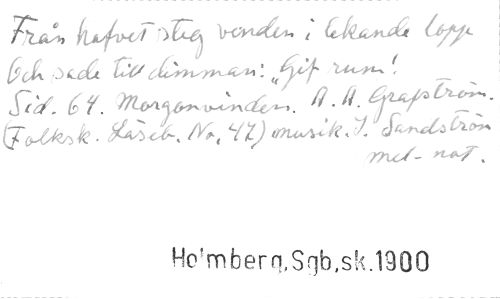 Från hafvet steg vinden i lekande lopp
Och sade till dimman: "Gif rum!
Sid. 64. Morgonvinden. A. A. Grafström.
(Folksk. Läseb. No. 47) musik. J. Sandström
mel-not.
Holmberg, Sgb, sk. 1900